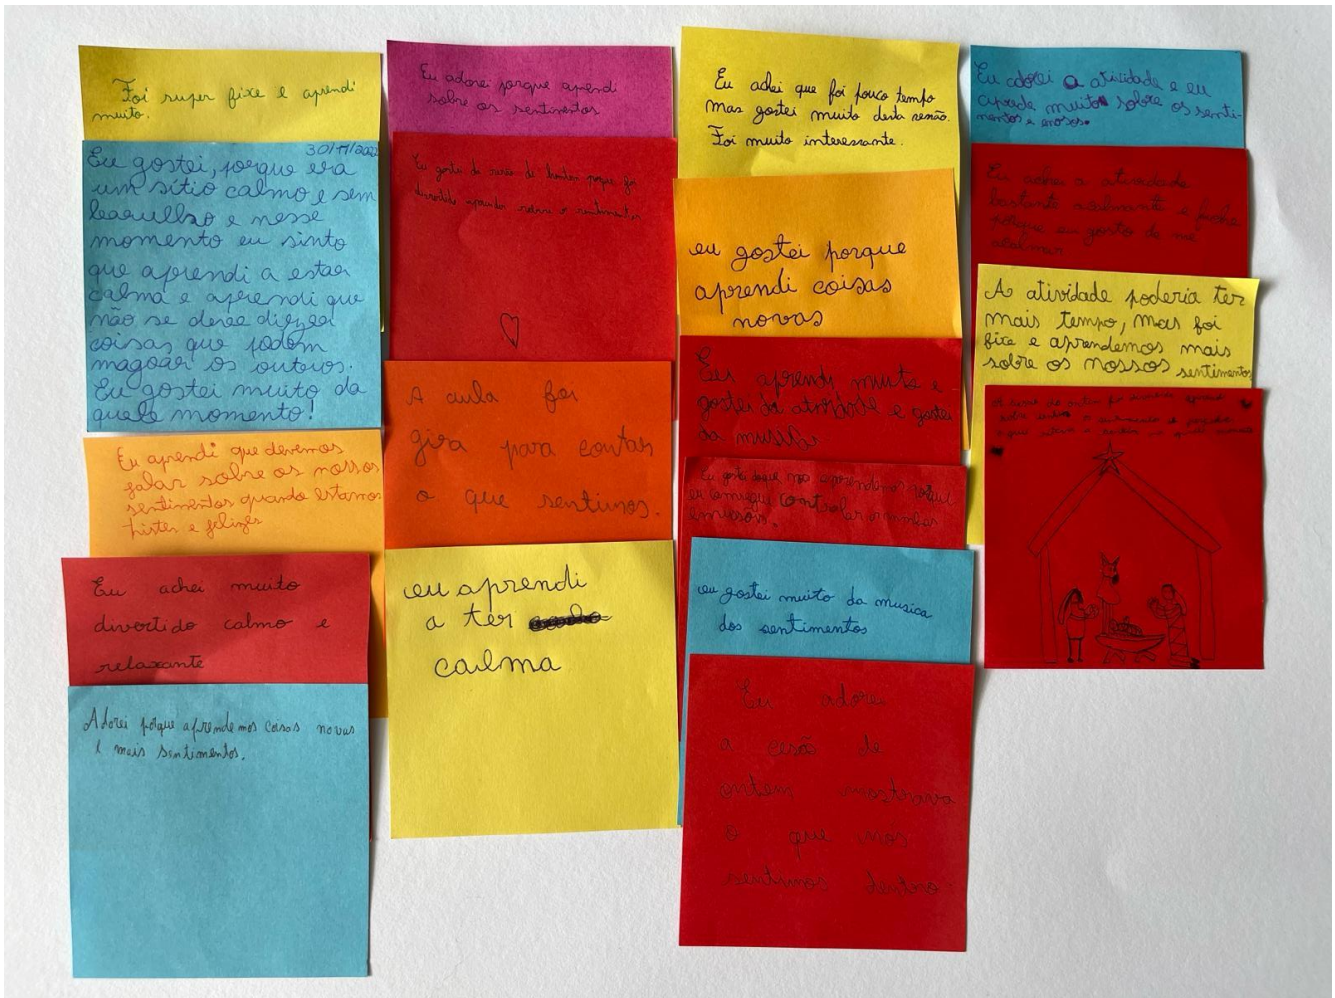 Foi super fixe e aprendi
muito.
30/11/2022
Eu gostei, porque era
um sítio calmo e sem
baarulho e nesse
momento eu sinto
que aprendi a estar
calma e aprendi que
não se deve dizer
coisas que podem
magoar os outros.
Eu gostei muito da
quele momento!
Eu aprendi que devemos
falar sobre os nossos
sentimentos quando estamos
tristes e felizes
Eu achei muito
divertido calmo e
relaxante
Adorei porque aprendemos coisas novas
e mais sentimentos.
Eu adorei porque aprendi
sobre os sentimentos
Eu gostei da de porque foi
divertido aprender sobre o sentimentos
A aula foi
gira para contar
o que sentimos.
eu aprendi
a ter
calma
Eu achei que foi pouco tempo
mas gostei muito desta
Foi muito interessante.
eu gostei porque
aprendi coisas
novas
Eu aprendi muito e
gostei da atividade e gostei
da musica
Eu gostei daquele aprendemos porque
eu consegui controlar as minhas
eu gostei muito da musica
dos sentimentos
Eu adorei
a cesão de
ontem mostrava
o que nós
sentimos dentro
Eu adorei a atividade e eu
muito sobre os senti-
mentos e
Eu achei a atividade
bastante acalmante e
porque eu gosto de me
acalmar
A atividade poderia ter
mais tempo, mas foi
fixe e aprendemos mais
sobre os nossos sentimentos